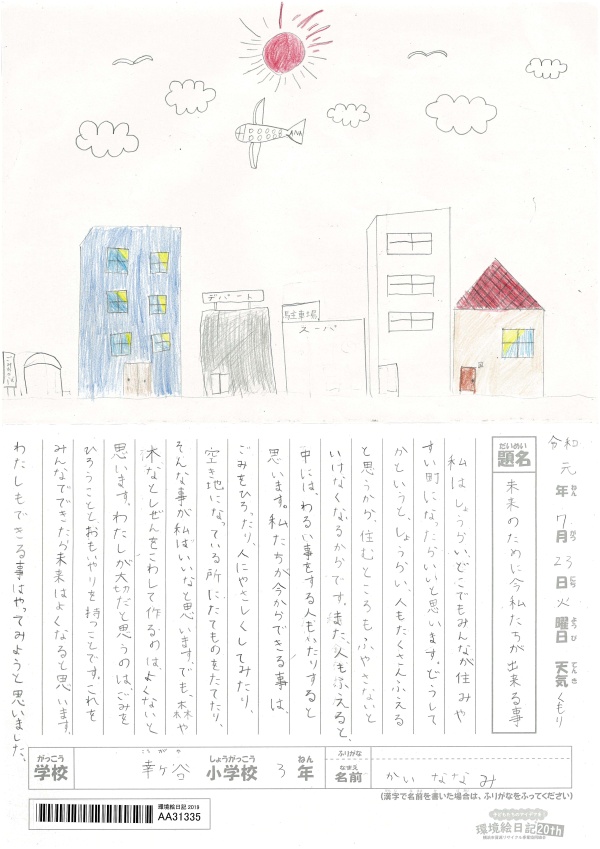 ANA
デパート
駐車場
スーパ
令和元年7月23日火曜日 天気くもり
だいめい
題名
未来のために今私たちが出来る事
私はしょうらい、どこでもみんなが住みや
すい町になったらいいと思います。どうして
かというと、しょうらい、人もたくさんふえる
と思うから、住むところもふやさないと
いけなくなるからです。また、人もふえると、
中には、わるい事をする人もいたりすると
思います。私たちが今からできる事は、
ごみをひろったり、人にやさしくしてみたり、
空き地になっている所にたてものをたてたり、
そんな事が私はいいなと思います。でも、森や
木などしぜんをこわして作るのは、よくないと
思います。わたしが大切だと思うのは、ごみを
ひろうことと、おもいやりを持つことです。これを
みんなでできたら未来はよくなると思います。
わたしもできる事はやってみようと思いました。
がっこう
学校
こうがや
幸ヶ谷
しょうがっこう
小学校
3
ねん
年
ふりがな
なまえ
名前
かい ななみ
(漢字で名前を書いた場合は、ふりがなをふってください)
環境絵日記 2019
AA31335
環境絵日記20th